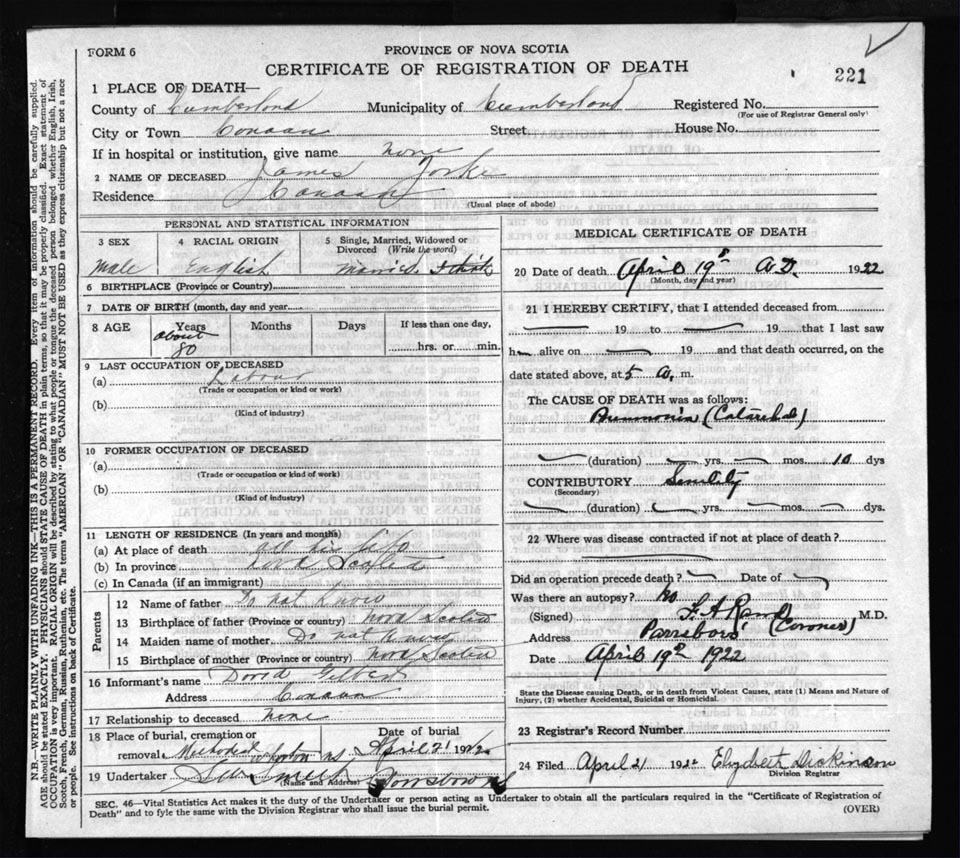 FORM 6
PROVINCE OF NOVA SCOTIA
CERTIFICATE OF REGISTRATION OF DEATH
221
1 PLACE OF DEATH—
County of Cumberland Municipality of Cumberland Registered No.
(For use of Registrar General only)
City or Town Canaan Street House No.
If in hospital or institution, give name none
2 NAME OF DECEASED James Yorke
Residence Canaan
(Usual place of abode)
PERSONAL AND STATISTICAL INFORMATION
3 SEX 4 RACIAL ORIGIN 5 Single, Married, Widowed or Divorced (Write the word)
Male English Married I think
6 BIRTHPLACE (Province or Country)
7 DATE OF BIRTH (month, day and year)
8 AGE Years Months Days If less than one day,
about 80 hrs. or min.
9 LAST OCCUPATION OF DECEASED
(a) Labour
(Trade or occupation or kind of work)
(b)
(Kind of industry)
10 FORMER OCCUPATION OF DECEASED
(a)
(Trade or occupation or kind of work)
(b)
(Kind of industry)
11 LENGTH OF RESIDENCE (In years and months)
(a) At place of death all his life
(b) In province Nova Scotia
(c) In Canada (if an immigrant)
Parents
12 Name of father Do not know
13 Birthplace of father (Province or country) Nova Scotia
14 Maiden name of mother Do not know
15 Birthplace of mother (Province or country) Nova Scotia
16 Informant's name David Gilbert
Address Canaan
17 Relationship to deceased none
18 Place of burial, cremation or removal Date of burial
Methodist NS April 21 1922
19 Undertaker
(Name and Address)
MEDICAL CERTIFICATE OF DEATH
20 Date of death April 19th A.D. 1922
(Month, day and year)
21 I HEREBY CERTIFY, that I attended deceased from
19 to 19 that I last saw
h alive on 19 and that death occurred, on the
date stated above, at 5 A. m.
The CAUSE OF DEATH was as follows:
Pneumonia (Catarrhal)
(duration) yrs. mos. 10 dys
CONTRIBUTORY Senility
(Secondary)
(duration) yrs. mos. dys.
22 Where was disease contracted if not at place of death?
Did an operation precede death? Date of
Was there an autopsy? no
(Signed) F. A. Rand (Coroner) M.D.
Address Parrsboro
Date April 19th 1922
State the Disease causing Death, or in death from Violent Causes, state (1) Means and Nature of Injury, (2) whether Accidental, Suicidal or Homicidal.
23 Registrar's Record Number
24 Filed April 21 1922 Elizabeth Dickinson
Division Registrar
SEC. 46—Vital Statistics Act makes it the duty of the Undertaker or person acting as Undertaker to obtain all the particulars required in the "Certificate of Registration of
Death" and to fyle the same with the Division Registrar who shall issue the burial permit. (OVER)
N.B.—WRITE PLAINLY WITH UNFADING INK—THIS IS A PERMANENT RECORD. Every item of information should be carefully supplied.
AGE should be stated EXACTLY. PHYSICIANS should STATE CAUSE OF DEATH in plain terms, so that it may be properly classified. Exact statement of
OCCUPATION is very important. RACIAL ORIGIN will be described by stating to what people or tongue the deceased person belonged whether English, Irish,
Scotch, French, German, Russian, Ruthenian, etc. The terms "AMERICAN" or "CANADIAN" MUST NOT BE USED as they express citizenship but not a race
or people. See instructions on back of Certificate.